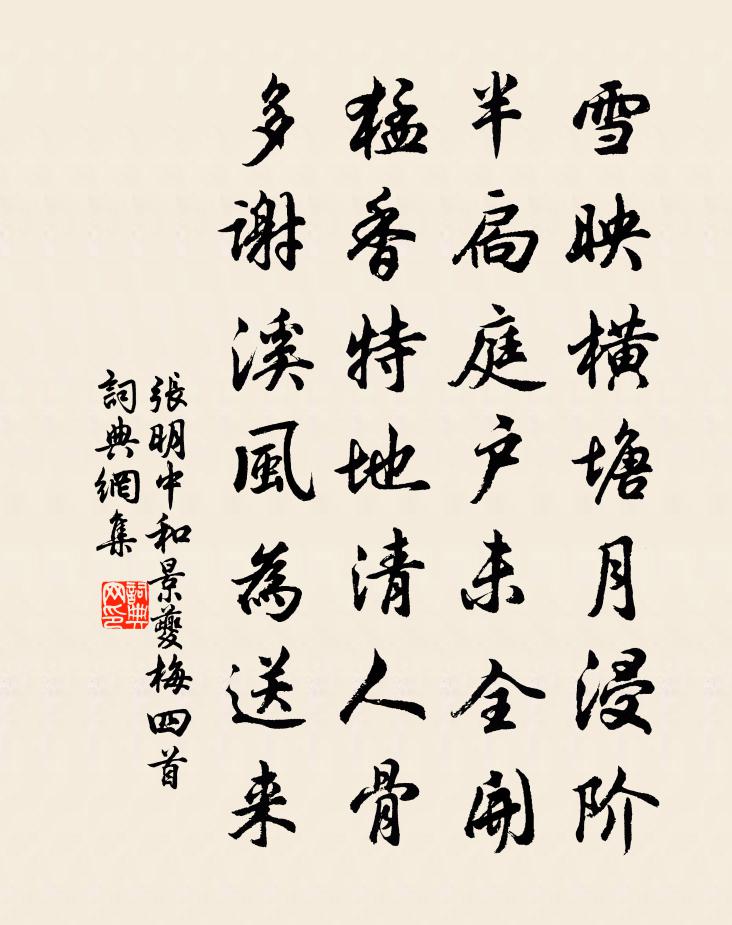 雪映橫塘月浸阶
半扃庭户未全開
猛香特地清人骨
多謝溪風為送来
張明中和景夔梅四首
詞典網集
詞典
网印